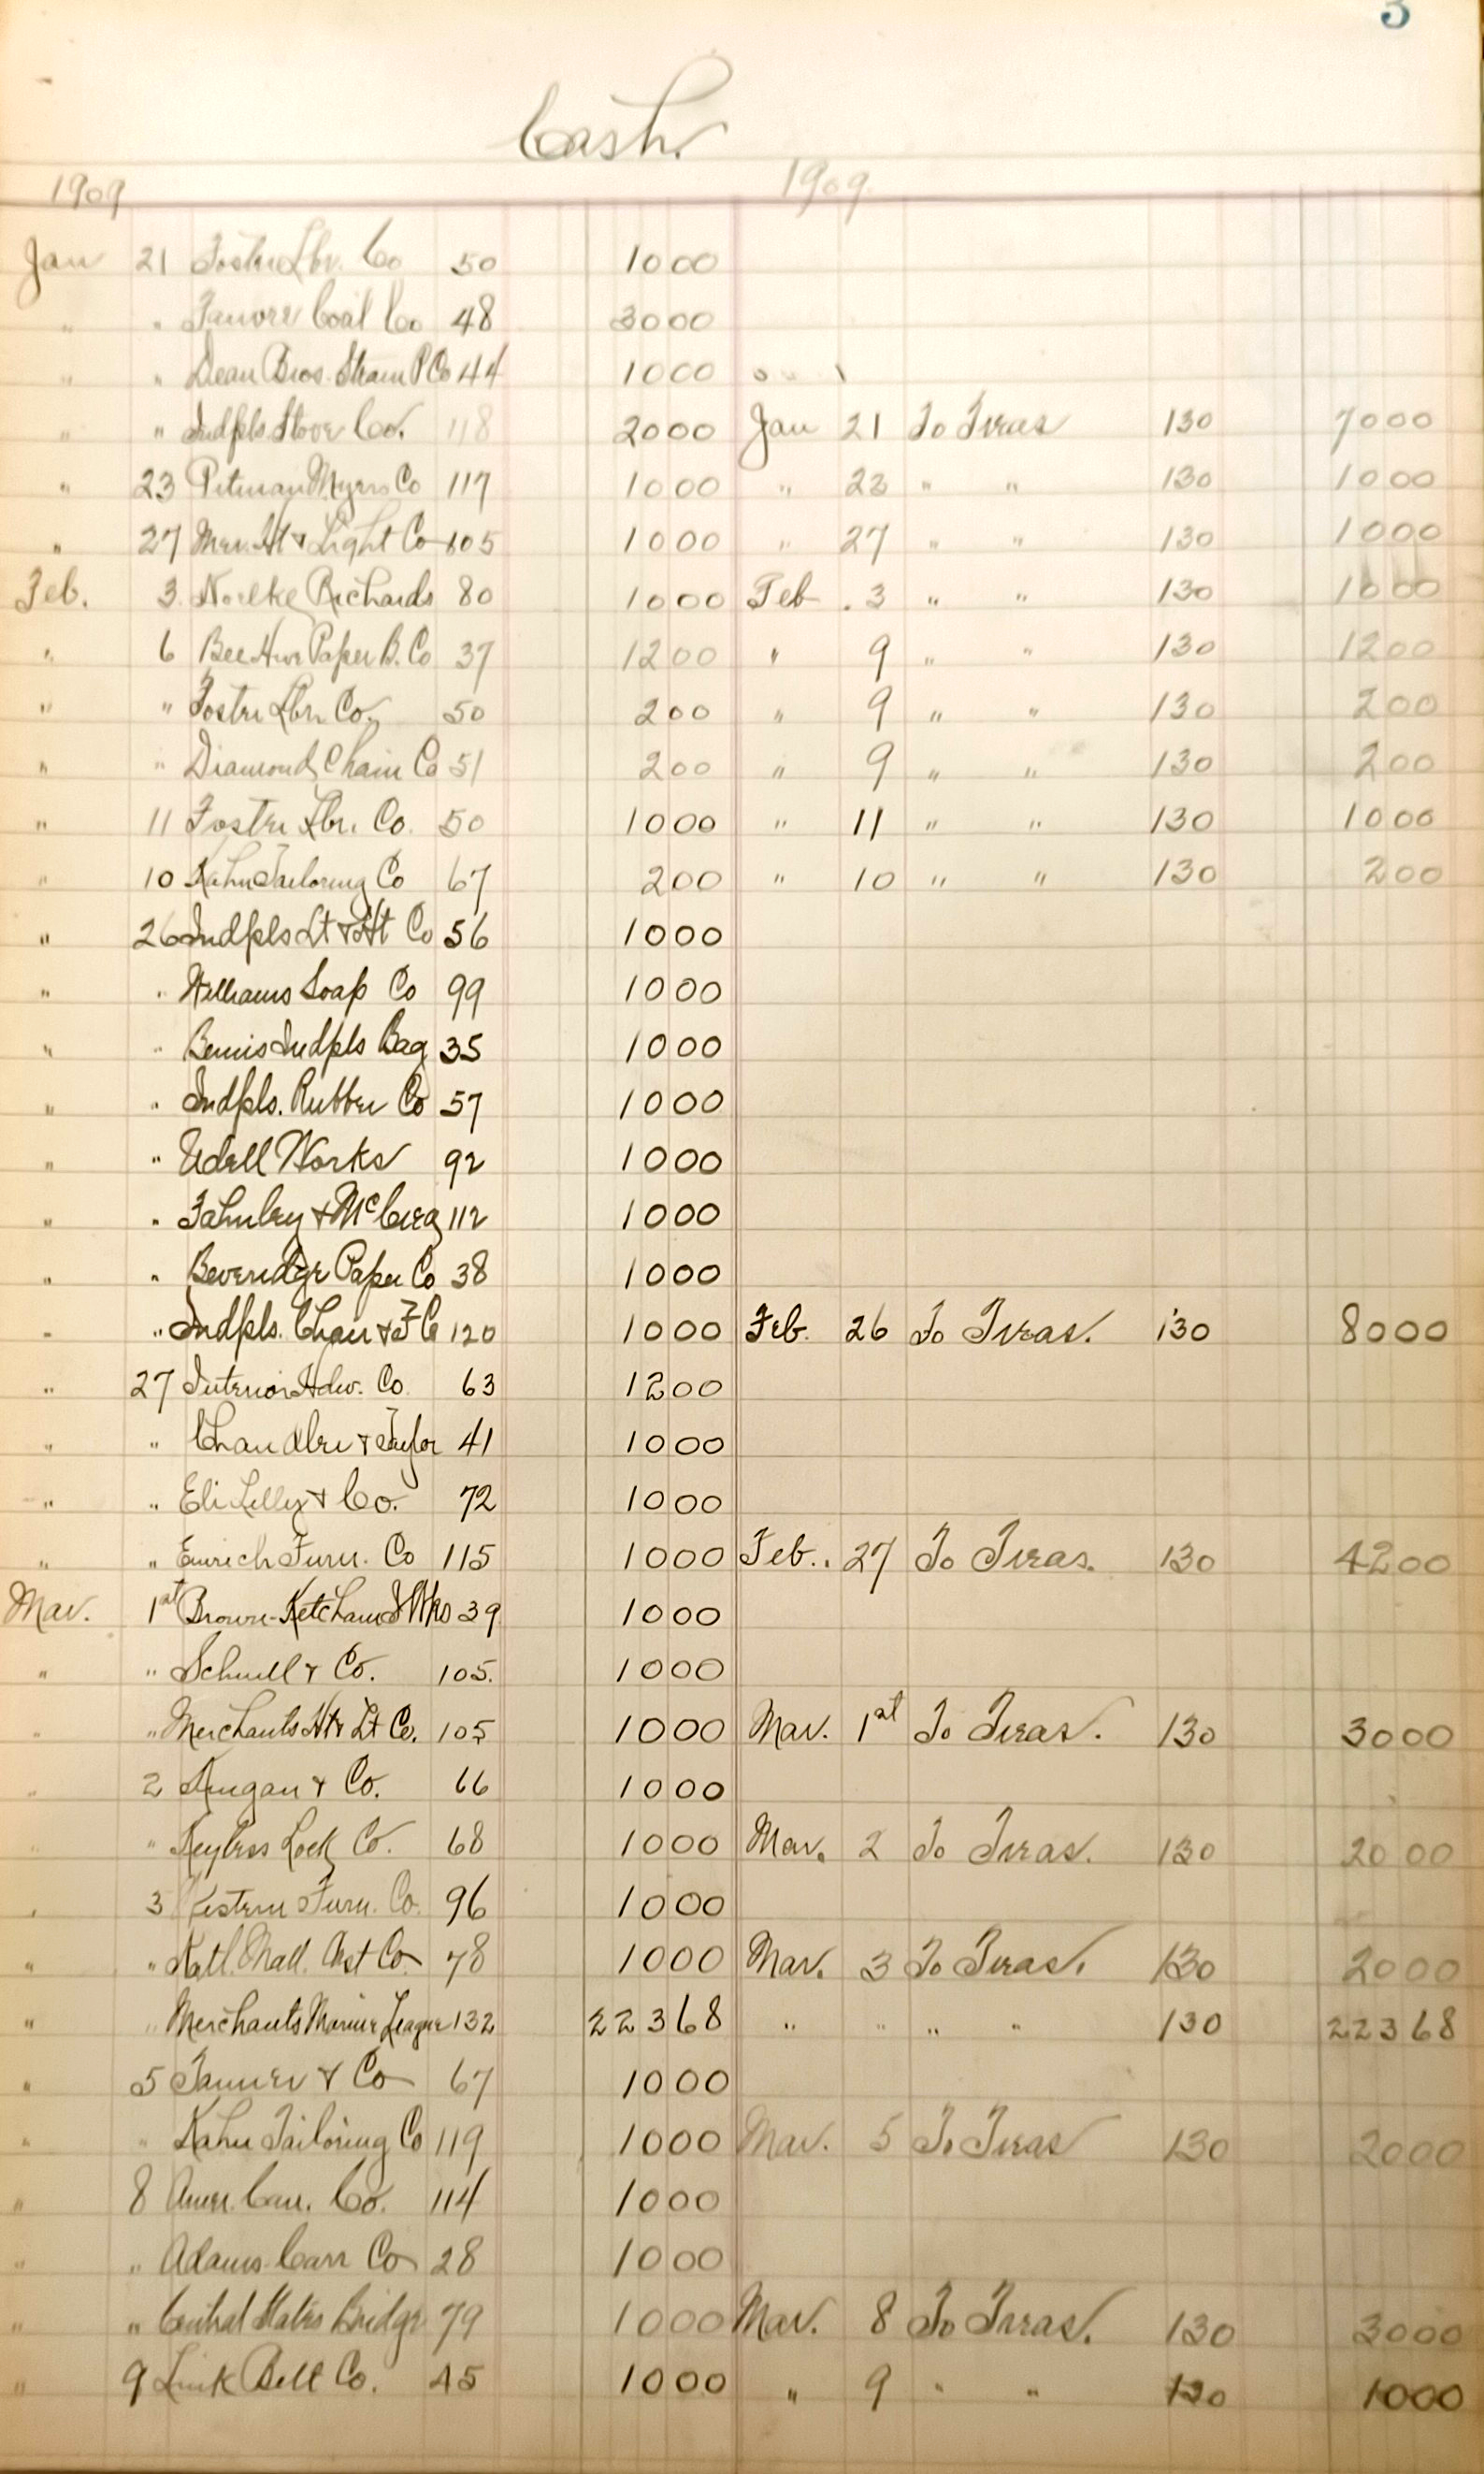 3
Cash.
1909 1909
Jan 21 Foster Lbr. Co 50 1000
" " Coal Co 48 3000
" " Dean Bros. Steam P Co 44 1000
" " Indpls Stove Co. 118 2000 Jan 21 To Treas 130 7000
" 23 Pitman Myers Co 117 1000 " 23 " " 130 1000
" 27 Mer. Ht + Light Co 105 1000 " 27 " " 130 1000
Feb. 3 Noelke Richards 80 1000 Feb. 3 " " 130 1000
" 6 Bee Hive Paper B. Co 37 1200 " 9 " " 130 1200
" " Foster Lbr. Co. 50 200 " 9 " " 130 200
" " Diamond Chain Co 51 200 " 9 " " 130 200
" 11 Foster Lbr. Co. 50 1000 " 11 " " 130 1000
" 10 Kahn Tailoring Co 67 200 " 10 " " 130 200
" 26 Indpls Lt + Ht Co 56 1000
" " Williams Soap Co 99 1000
" " Bemis Indpls Bag 35 1000
" " Indpls. Rubber Co 57 1000
" " Udell Works 92 1000
" " Fahnley + McCrea 112 1000
" " Beveridge Paper Co 38 1000
" " Indpls. Chair + F Co 120 1000 Feb. 26 To Treas. 130 8000
" 27 Interior Hdw. Co. 63 1200
" " Chandler + Taylor 41 1000
" " Eli Lilly + Co. 72 1000
" " Emrich Furn. Co 115 1000 Feb. 27 To Treas. 130 4200
Mar. 1st Brown-Ketcham I Wks 39 1000
" " Schnull + Co. 105. 1000
" " Merchants Ht + Lt Co. 105 1000 Mar. 1st To Treas. 130 3000
" 2 Kingan + Co. 66 1000
" " Keyless Lock Co. 68 1000 Mar. 2 To Treas. 130 2000
" 3 Western Furn. Co. 96 1000
" " Natl. Mall. Cast Co. 78 1000 Mar. 3 To Treas. 130 2000
" " Merchants Marine League 132 22368 " " " " 130 22368
" 5 Tanner + Co 67 1000
" " Kahn Tailoring Co 119 1000 Mar. 5 To Treas 130 2000
" 8 Amer. Can. Co. 114 1000
" " Adams-Carr Co 28 1000
" " Central States Bridge 79 1000 Mar. 8 To Treas. 130 3000
" 9 Link Belt Co. 45 1000 " 9 " " 130 1000